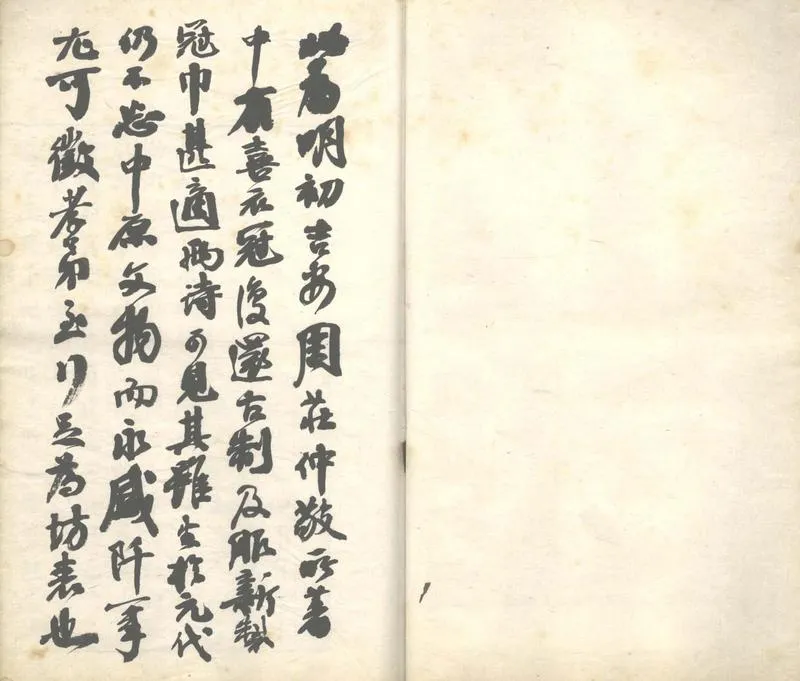 此為明初吉安周莊仲敬所著
中有喜衣冠復還古制及服新製
冠巾甚適兩诗可見其雖生於元代
仍不忘中原文物而永感阡一事
尤可徵孝弟至行足為坊表也